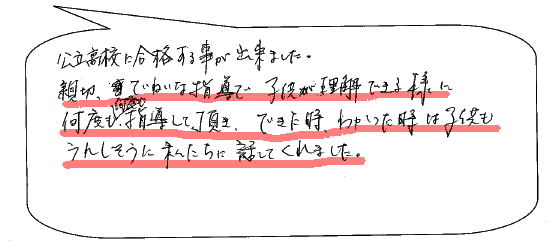 公立高校に合格する事が出来ました。
親切、ていねいな指導で 子供が理解できる様に
何度も指導して頂き、できた時、わかった時は子供も
うれしそうに私たちに話してくれました。